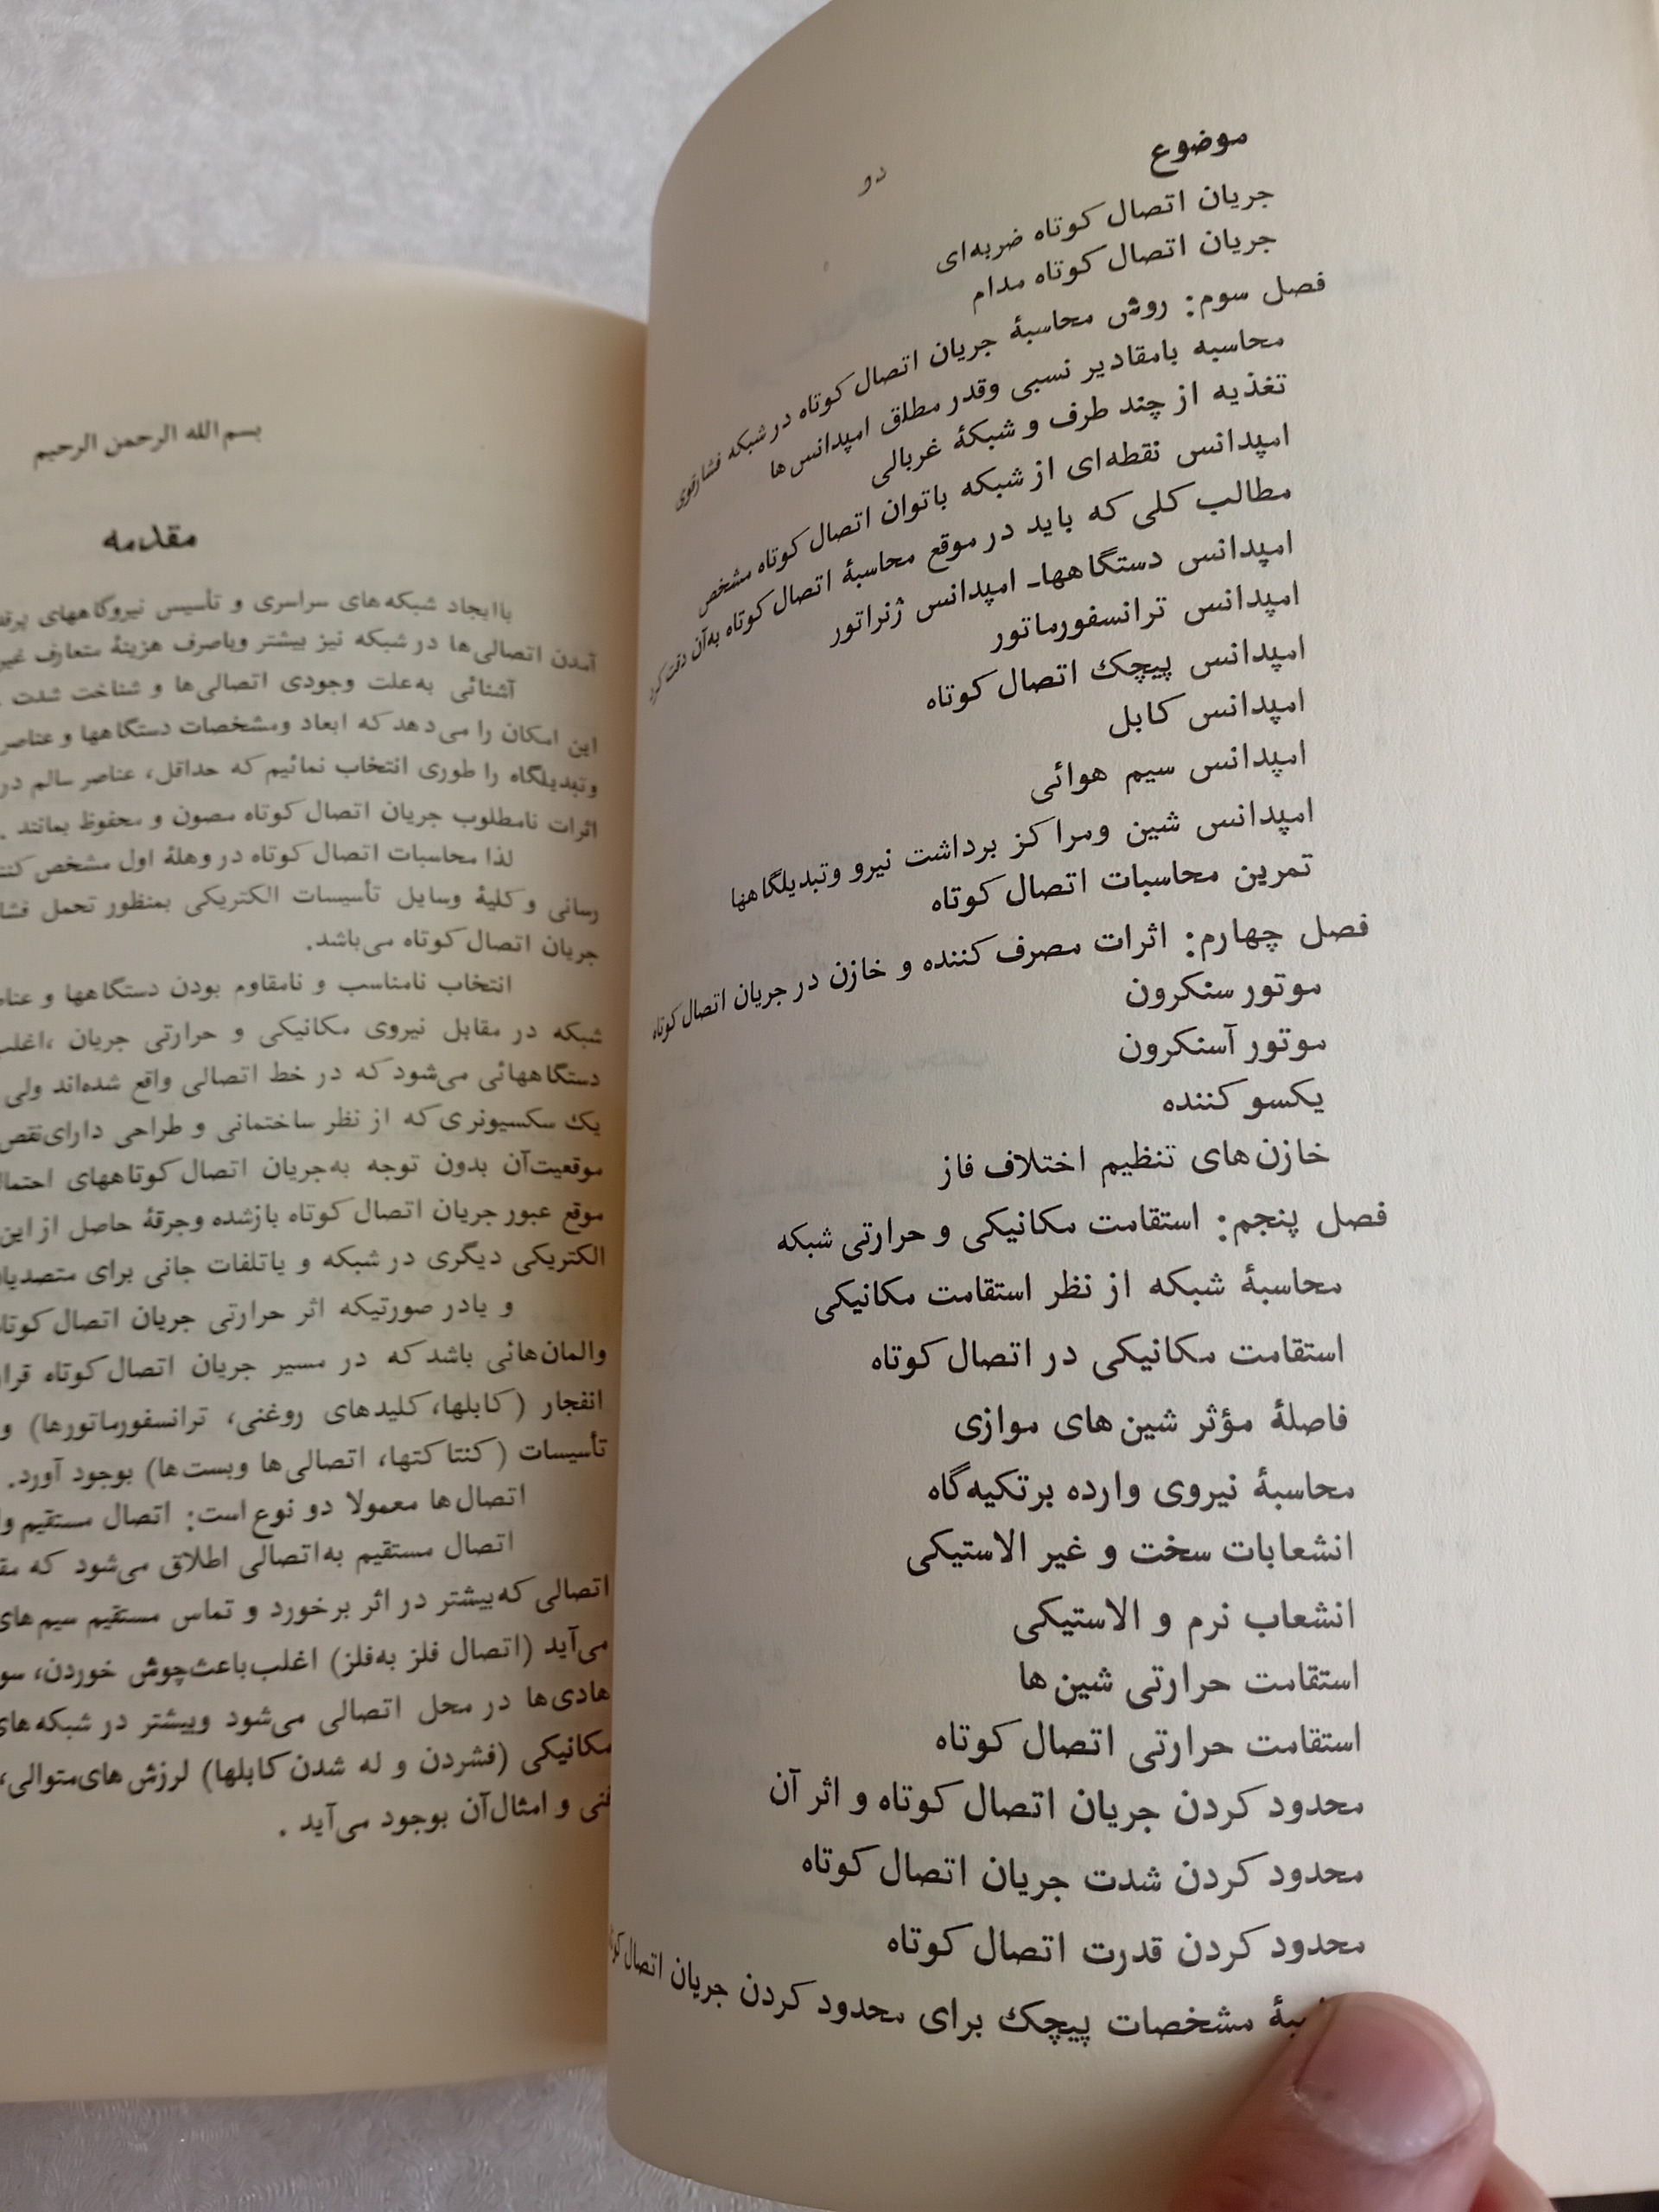 دو
موضوع
جریان اتصال کوتاه ضربه‌ای
جریان اتصال کوتاه مدام
فصل سوم: روش محاسبهٔ جریان اتصال کوتاه در شبکه فشارقوی
محاسبه بامقادیر نسبی وقدر مطلق امپدانس‌ها
تغذیه از چند طرف و شبکهٔ غربالی
امپدانس نقطه‌ای از شبکه باتوان اتصال کوتاه مشخص
مطالب کلی که باید در موقع محاسبهٔ اتصال کوتاه به‌آن دقت کرد
امپدانس دستگاهها۔ امپدانس ژنراتور
امپدانس ترانسفورماتور
امپدانس پیچک اتصال کوتاه
امپدانس کابل
امپدانس سیم هوائی
امپدانس شین ومراکز برداشت نیرو وتبدیلگاهها
تمرین محاسبات اتصال کوتاه
فصل چهارم: اثرات مصرف کننده و خازن در جریان اتصال کوتاه
موتور سنکرون
موتور آسنکرون
یکسو کننده
خازن‌های تنظیم اختلاف فاز
فصل پنجم: استقامت مکانیکی و حرارتی شبکه
محاسبهٔ شبکه از نظر استقامت مکانیکی
استقامت مکانیکی در اتصال کوتاه
فاصلهٔ مؤثر شین‌های موازی
محاسبهٔ نیروی وارده برتکیه‌گاه
انشعابات سخت و غیر الاستیکی
انشعاب نرم و الاستیکی
استقامت حرارتی شین‌ها
استقامت حرارتی اتصال کوتاه
محدود کردن جریان اتصال کوتاه و اثر آن
محدود کردن شدت جریان اتصال کوتاه
محدود کردن قدرت اتصال کوتاه
مشخصات پیچک برای محدود کردن جریان اتصال
بسم‌الله الرحمن الرحیم
مقدمه
باایجاد شبکه‌های سراسری و تأسیس نیروگاههای
آمدن اتصالی‌ها در شبکه نیز بیشتر وباصرف هزینهٔ متعارف
آشنائی به‌علت وجودی اتصالی‌ها و شناخت شدت
این امکان را می‌دهد که ابعاد ومشخصات دستگاهها و عناصر
وتبدیلگاه را طوری انتخاب نمائیم که حداقل، عناصر سالم در
اثرات نامطلوب جریان اتصال کوتاه مصون و محفوظ بمانند .
لذا محاسبات اتصال کوتاه در وهلهٔ اول مشخص
رسانی و کلیهٔ وسایل تأسیسات الکتریکی بمنظور تحمل
جریان اتصال کوتاه می‌باشد.
انتخاب نامناسب و نامقاوم بودن دستگاهها و
شبکه در مقابل نیروی مکانیکی و حرارتی جریان ،اغلب
دستگاههائی می‌شود که در خط اتصالی واقع شده‌اند ولی
یک سکسیونری که از نظر ساختمانی و طراحی دارای‌نقص
موقعیت‌آن بدون توجه به‌جریان اتصال کوتاههای
موقع عبور جریان اتصال کوتاه بازشده وجرقهٔ حاصل از این
الکتریکی دیگری در شبکه و یاتلفات جانی برای
و یادر صورتیکه اثر حرارتی جریان اتصال
والمان‌هائی باشد که در مسیر جریان اتصال کوتاه
انفجار (کابلها، کلیدهای روغنی، ترانسفورماتورها) و
تأسیسات (کنتاکتها، اتصالی‌ها وبست‌ها) بوجود آورد.
اتصال‌ها معمولا دو نوع است: اتصال مستقیم
اتصال مستقیم به‌اتصالی اطلاق می‌شود که
اتصالی که‌بیشتر در اثر برخورد و تماس مستقیم سیم‌های
می‌آید (اتصال فلز به‌فلز) اغلب‌باعث‌جوش خوردن،
هادی‌ها در محل اتصالی می‌شود وبیشتر در شبکه‌های
مکانیکی (فشردن و له شدن کابلها) لرزش‌های‌متوالی،
و امثال‌آن بوجود می‌آید .